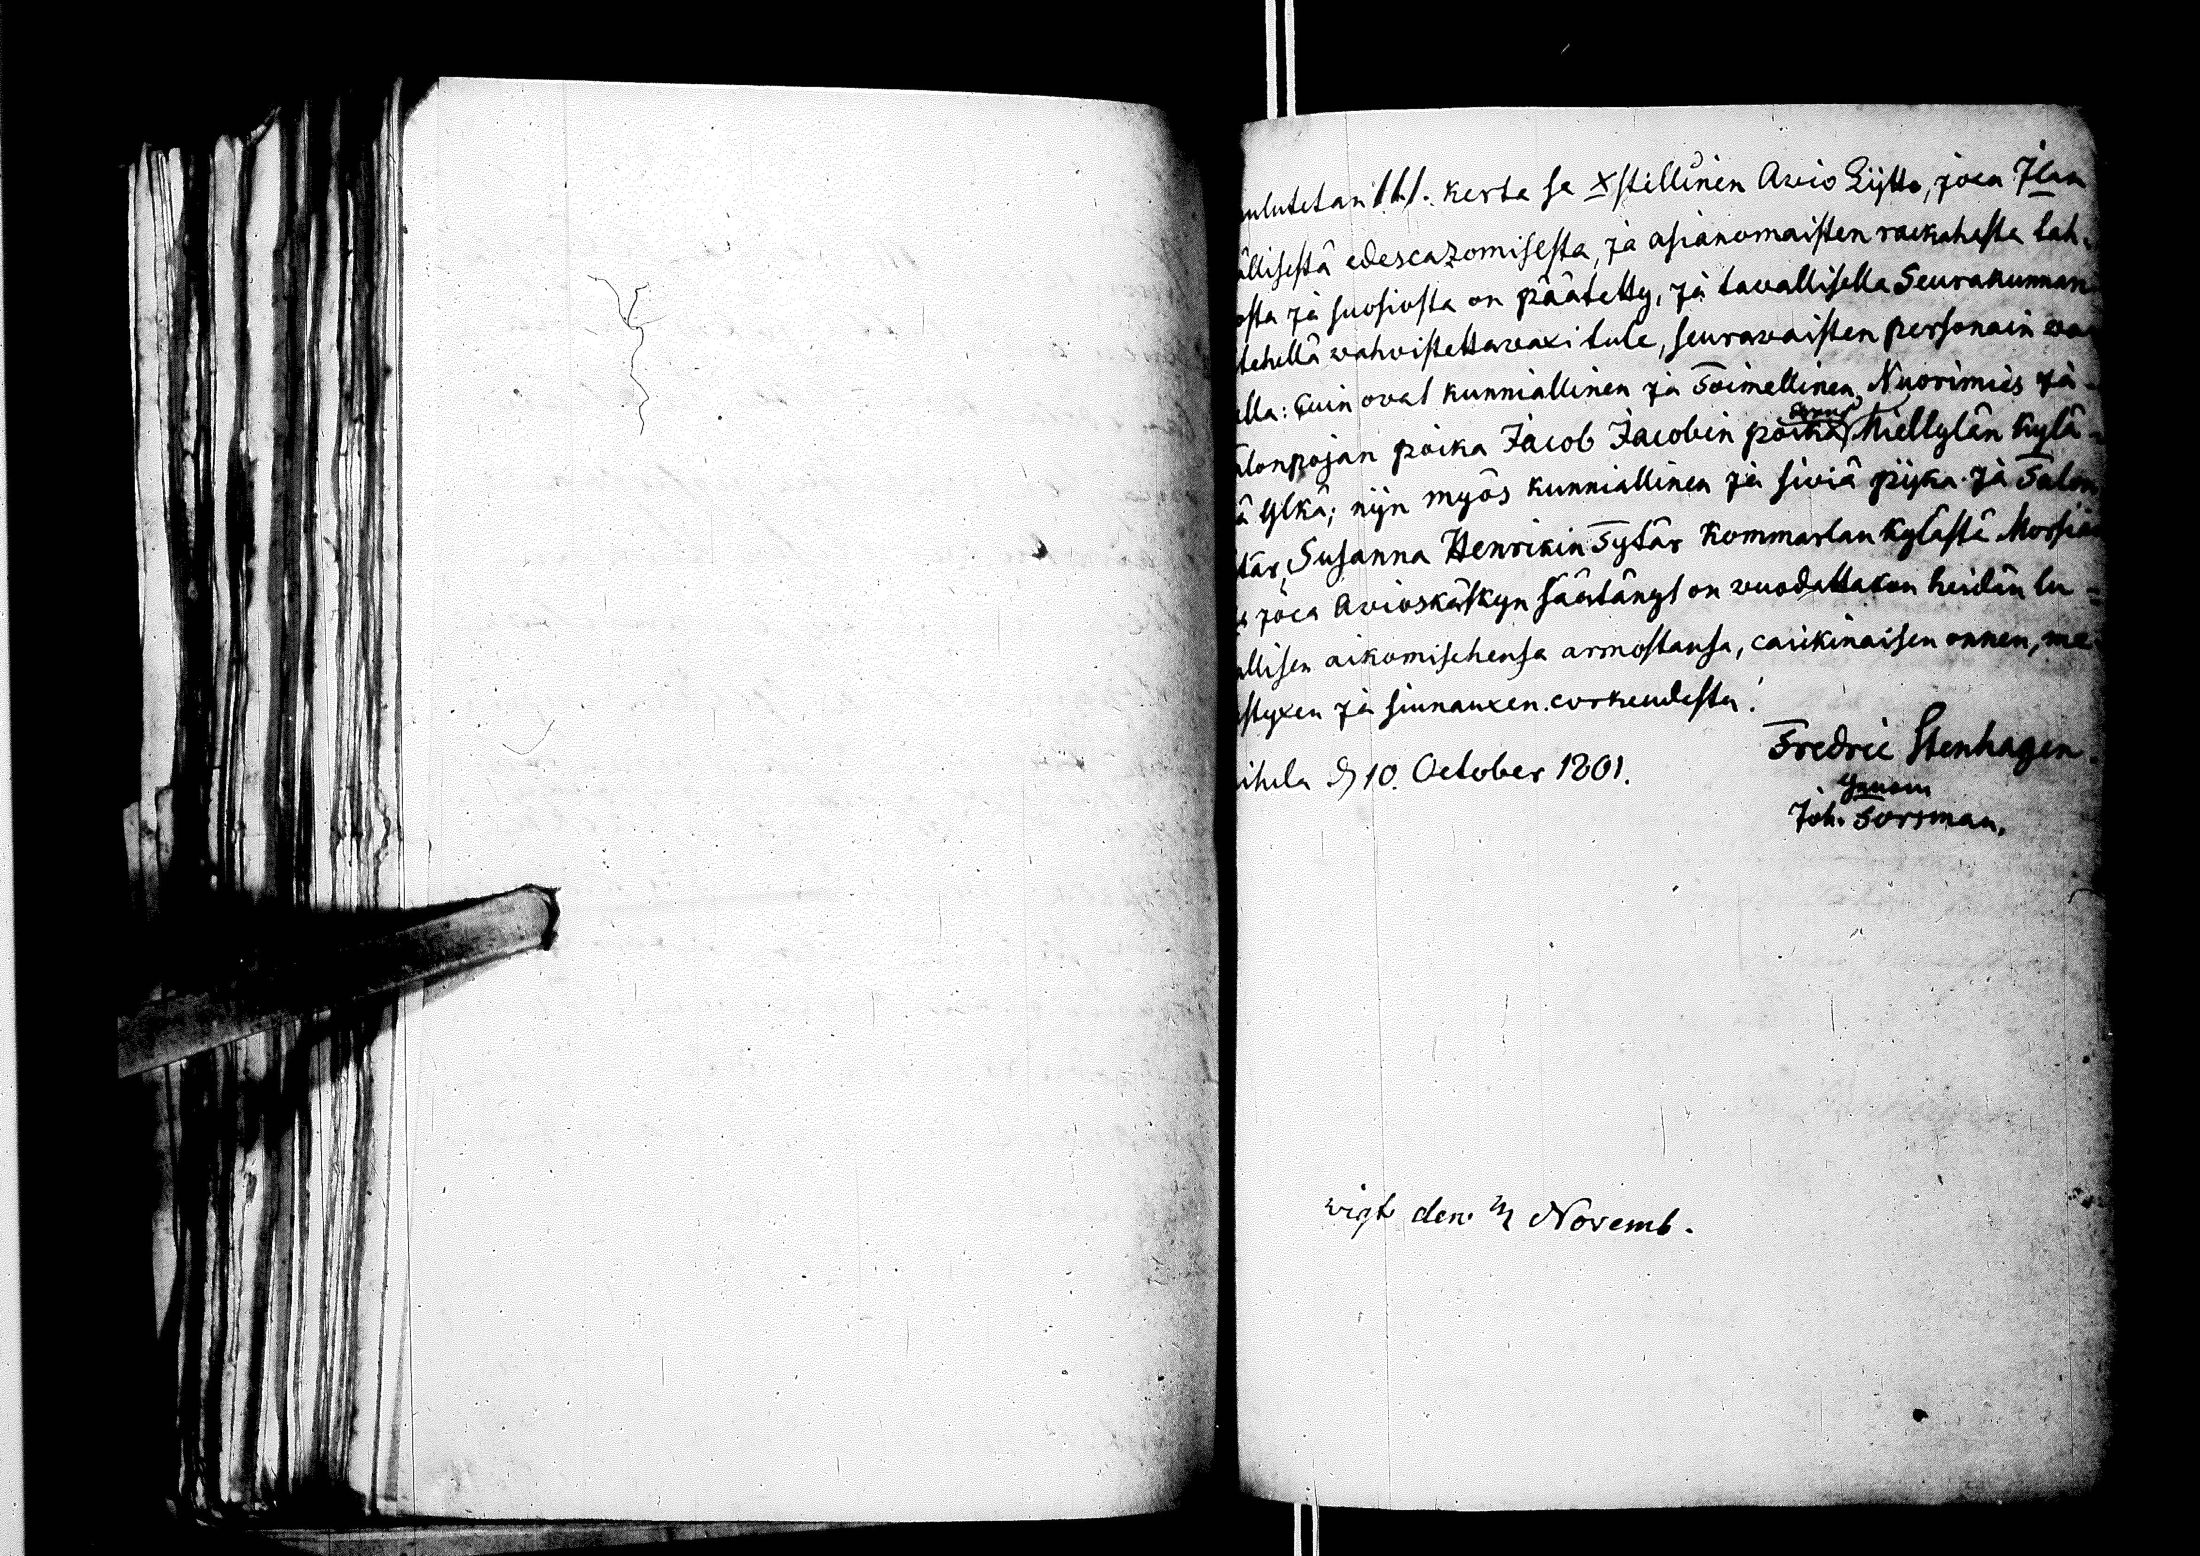 ulutetan 1.1.1. kerta se Xstillinen Avio Lijtto, joca Jlan
ällisestä edescazomisesta, ja asianomaisten rackahasta tah-
osta ja suosiosta on päätetty, ja tavallisella Seurakunnan
tehellä wahvistettavaxi tule, seurawaisten personain wa
lla: Cuin ovat kunniallinen ja Toimellinen, Nuorimies ja
alonpojan poika Jacob Jacobin poika Miellylän kylä-
ä Ylkä; nijn myös kunniallinen ja siviä pijka ja Talon
tär, Susanna Henrikin Tytär Kommarlan kylästä Morsian
joca Avioskäskyn säätänyt on wuodattakon heidän lu-
allisen aikomisehensa armostansa, caickinaisen onnen, me
styxen ja siunauxen corkeudesta!
Fredric Stenhagen.
ihela d 10. October 1801.
genom
Joh. Forsman.
vigt den Novemb.